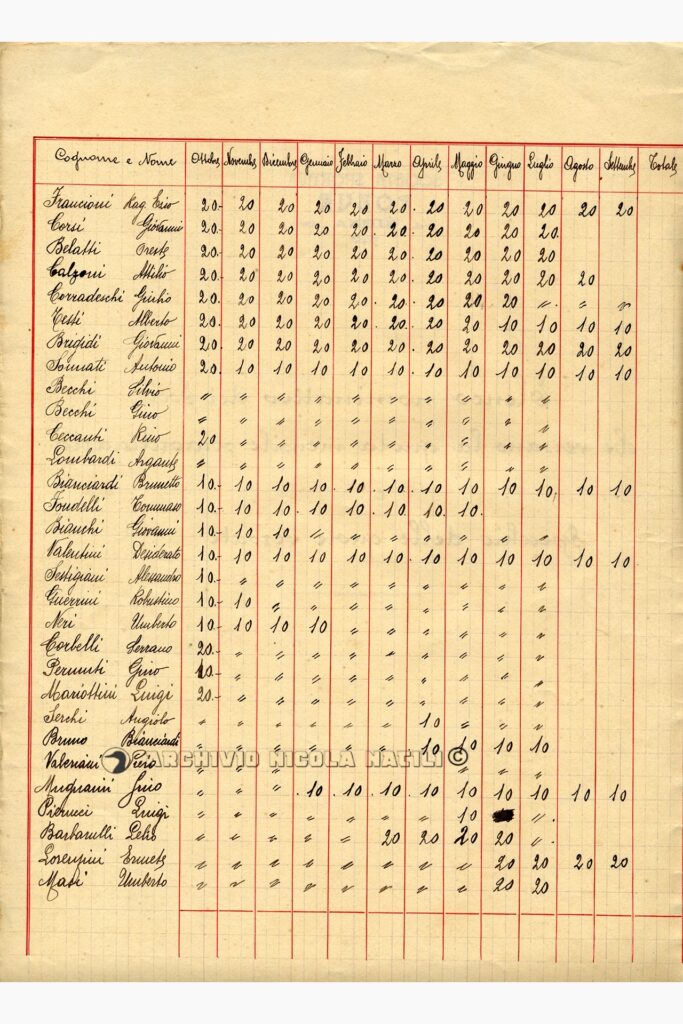 Cognome e Nome Ottobre Novembre Dicembre Gennaio Febbraio Marzo Aprile Maggio Giugno Luglio Agosto Settembre Totale
Francioni Rag. Ezio 20.- 20 20 20 20 20 20 20 20 20 20 20
Corsi Giovanni 20.- 20 20 20 20 20 20 20 20 20
Belatti Oreste 20.- 20 20 20 20 20 20 20 20 20
Calzoni Attilio 20.- 20 20 20 20 20 20 20 20 20 20
Corradeschi Giulio 20.- 20 20 20 20 20 20 20 20 〃 〃 〃
Testi Alberto 20.- 20 20 20 20 20 20 20 10 10 10 10
Brigidi Giovanni 20.- 20 20 20 20 20 20 20 20 20 20 20
Sonnati Antonio 20.- 10 10 10 10 10 10 10 10 10 10 10
Becchi Silvio 〃 〃 〃 〃 〃 〃 〃 〃 〃 〃
Becchi Gino 〃 〃 〃 〃 〃 〃 〃 〃 〃 〃
Ceccanti Rino 20 〃 〃 〃 〃 〃 〃 〃 〃 〃
Lombardi Argante 〃 〃 〃 〃 〃 〃 〃 〃 〃 〃
Bianciardi Brunetto 10.- 10 10 10 10 10 10 10 10 10 10 10
Fondelli Tommaso 10.- 10 10 10 10 10 10 10
Bianchi Giovanni 10.- 10 10 〃 〃 〃 〃 〃 〃 〃
Valentini Desiderato 10.- 10 10 10 10 10 10 10 10 10 10 10
Sestigiani Alessandro 10.- 〃 〃 〃 〃 〃 〃 〃 〃 〃
Guerrini Robustino 10.- 10 〃 〃 〃 〃 〃 〃 〃 〃
Neri Umberto 10.- 10 10 10 〃 〃 〃 〃 〃 〃
Corbelli Serrano 20.- 〃 〃 〃 〃 〃 〃 〃 〃 〃
Gino 10.- 〃 〃 〃 〃 〃 〃 〃 〃 〃
Mariottini Luigi 20.- 〃 〃 〃 〃 〃 〃 〃 〃 〃
Serchi Angiolo 〃 〃 〃 〃 〃 〃 10 〃 〃 〃
Bruno Bianciardi 〃 〃 〃 〃 〃 〃 10 10 10 10
Valeriani Piero 〃 〃 〃 〃 〃 〃
ARCHIVIO NICOLA NATILI ©
Mugnaini Gino 〃 〃 〃 10 10 10 10 10 10 10 10 10
Pierucci Luigi 〃 〃 〃 〃 〃 〃 〃 10 〃
Barbarulli Lelio 〃 〃 〃 〃 〃 20 20 20 20 〃
Lorenzini Ermete 〃 〃 〃 〃 〃 〃 〃 〃 20 20 20 20
Masi Umberto 〃 〃 〃 〃 〃 〃 〃 〃 20 20